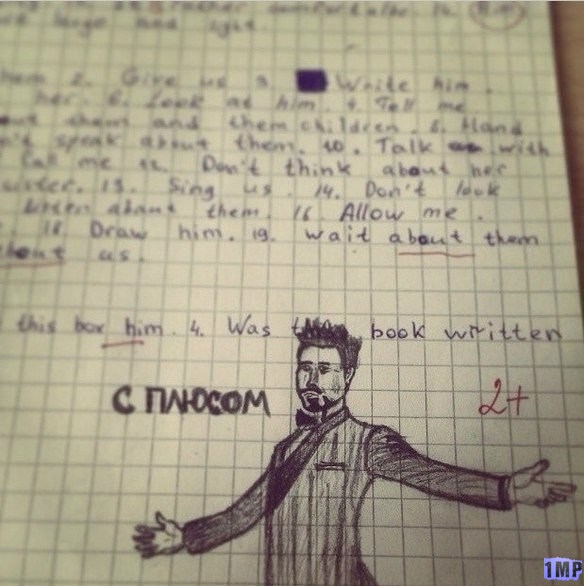 large and light
them 2. Give us 3. Write him.
her. 6. Look at him. 7. Tell me
them and them children. 8. Hand
speak about them. 10. Talk with
Call me 12. Don't think about her
sister. 13. Sing us. 14. Don't look
listen about them. 16. Allow me.
18. Draw him. 19. wait about them
about us.
this box him. 4. Was book written
С ПЛЮСОМ
2+
1MP